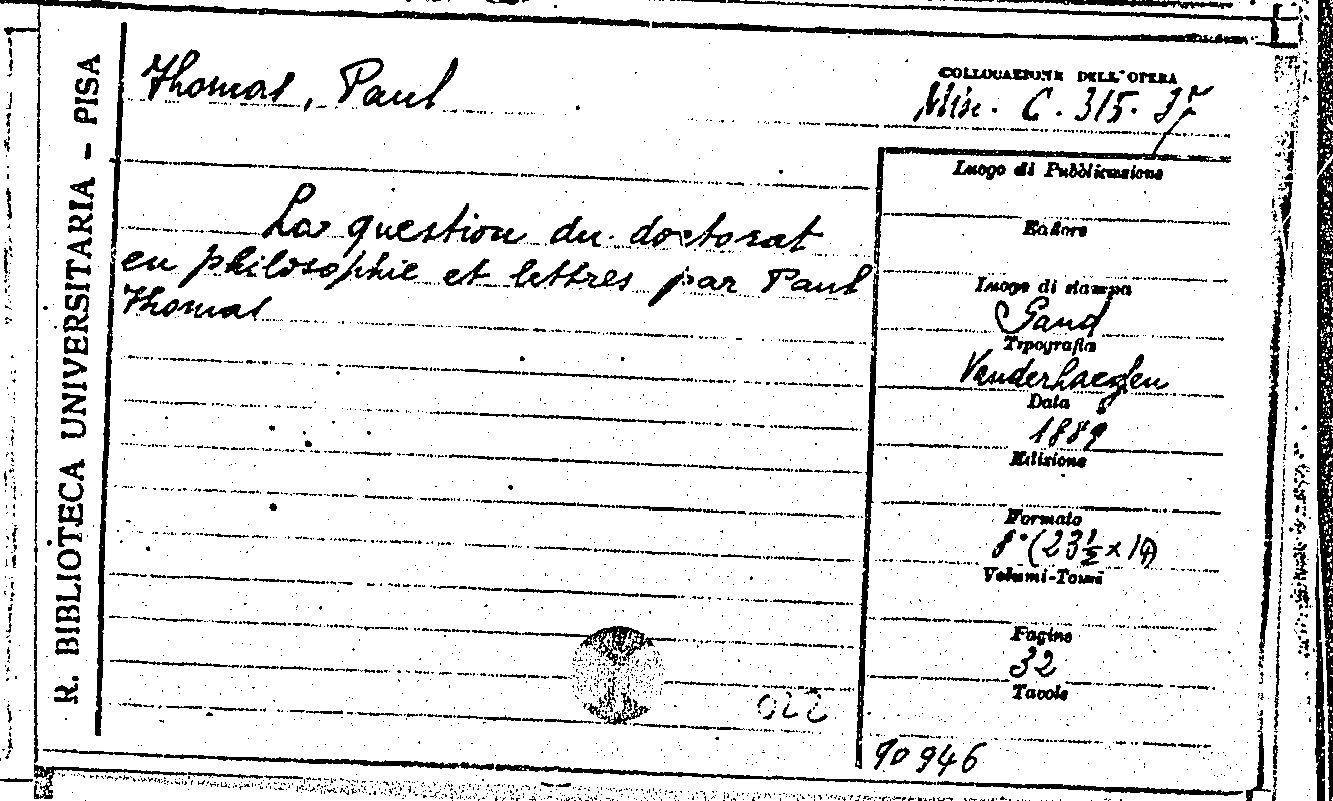 R. BIBLIOTECA UNIVERSITARIA - PISA
Thomas, Paul
COLLOCAZIONE DELL'OPERA
Misc. C. 315. 37
La question du doctorat
en philosophie et lettres par Paul
Thomas
Luogo di Pubblicazione
Editore
Luogo di stampa
Gand
Tipografia
Vanderhaeghen
Data
1889
Edizione
Formato
8° (23½ x 16)
Volumi-Tomi
Pagine
32
Tavole
022
90946